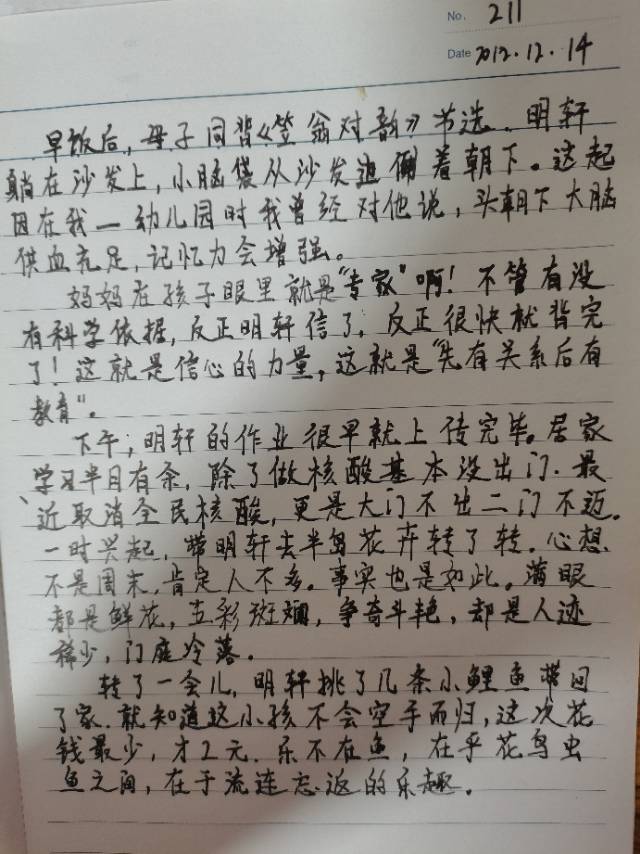 No. 211
Date 2012.12.14
早饭后，母子同背《笠翁对韵》节选．明轩
躺在沙发上，小脑袋从沙发边侧着朝下。这起
因在我一幼儿园时我曾经对他说，头朝下大脑
供血充足，记忆力会增强。
妈妈在孩子眼里就是"专家"啊！不管有没
有科学依据，反正明轩信了，反正很快就背完
了！这就是信心的力量，这就是"先有关系后有
教育"。
下午，明轩的作业很早就上传完毕。居家
学习半月有余，除了做核酸基本没出门．最
近取消全民核酸，更是大门不出二门不迈。
一时兴起，带明轩去半岛花卉转了转．心想，
不是周末，肯定人不多。事实也是如此。满眼
都是鲜花，五彩斑斓，争奇斗艳，却是人迹
稀少，门庭冷落。
转了一会儿，明轩挑了几条小鲤鱼带回
了家．就知道这小孩不会空手而归，这次花
钱最少，才2元．乐不在鱼，在乎花鸟虫
鱼之间，在于流连忘返的乐趣．